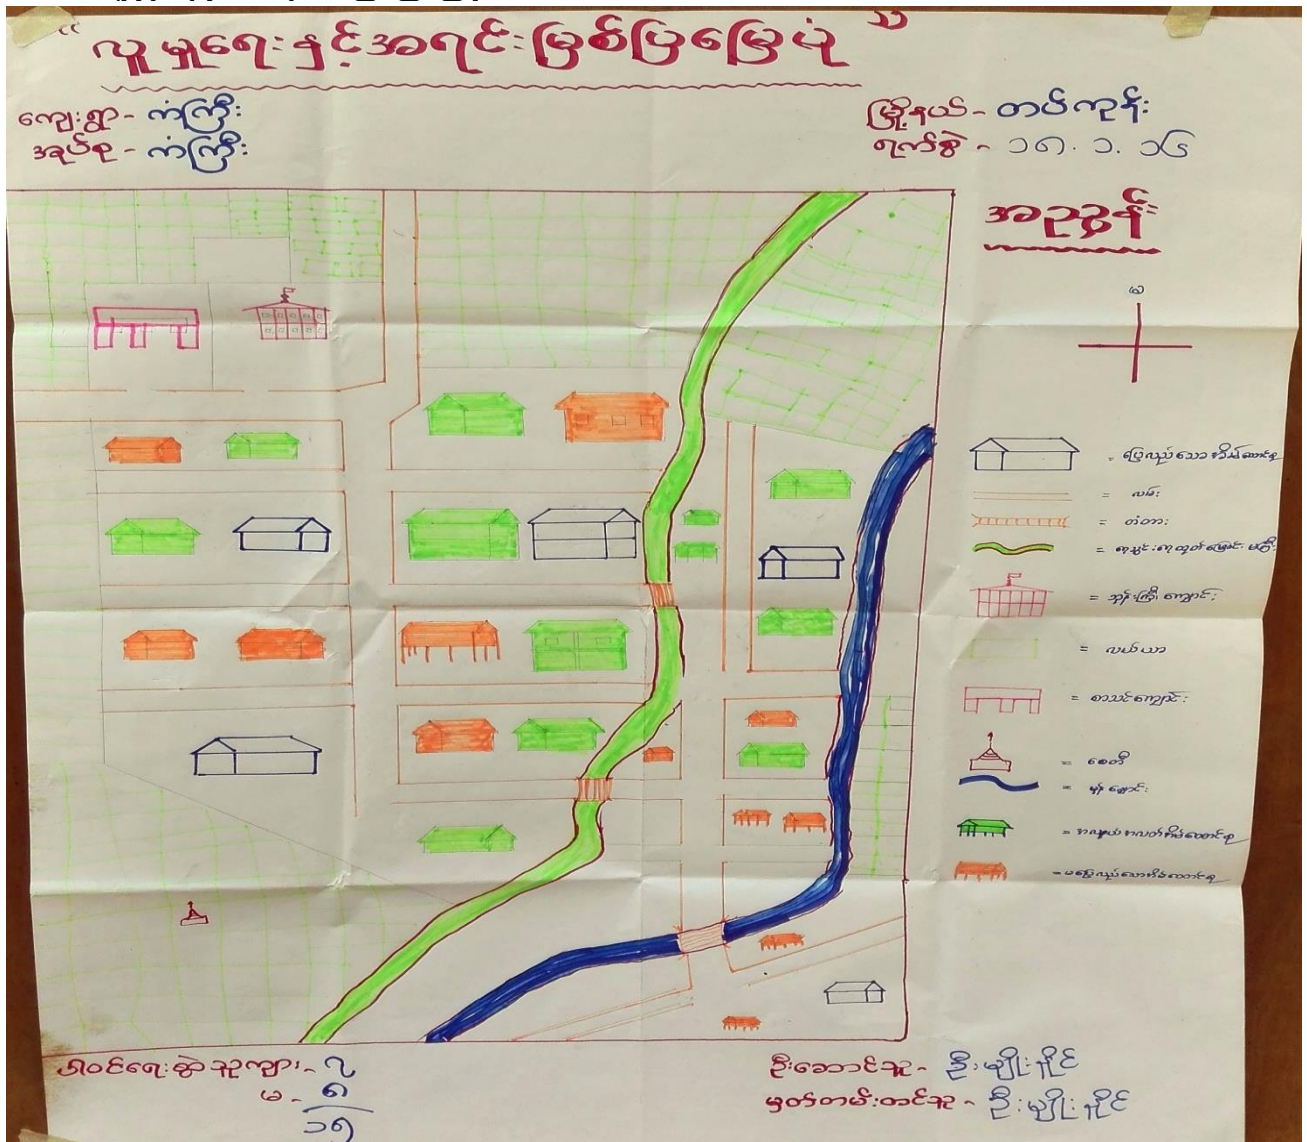 “ လူမှုရေးနှင့်အရင်းမြစ်ပြမြေပုံ ”
ကျေးရွာ - ကံကြီး
အုပ်စု - ကံကြီး
မြို့နယ် - တပ်ကုန်း
ရက်စွဲ - ၁၈.၁.၁၆
အညွှန်း
= ပြေလည်သောအိမ်ထောင်စု
= လမ်း
= တံတား
= ရေသွင်းရေထုတ်မြောင်းမကြီး
= ဘုန်းကြီးကျောင်း
= လယ်ယာ
= စာသင်ကျောင်း
= စေတီ
= အလယ်အလတ်အိမ်ထောင်စု
= မပြေလည်သောအိမ်ထောင်စု
ပါဝင်ရေးဆွဲသူကျား - ၇
မ - ၈
၁၅
ဦးဆောင်သူ - ဦးမျိုးနိုင်
မှတ်တမ်းတင်သူ - ဦးမျိုးနိုင်